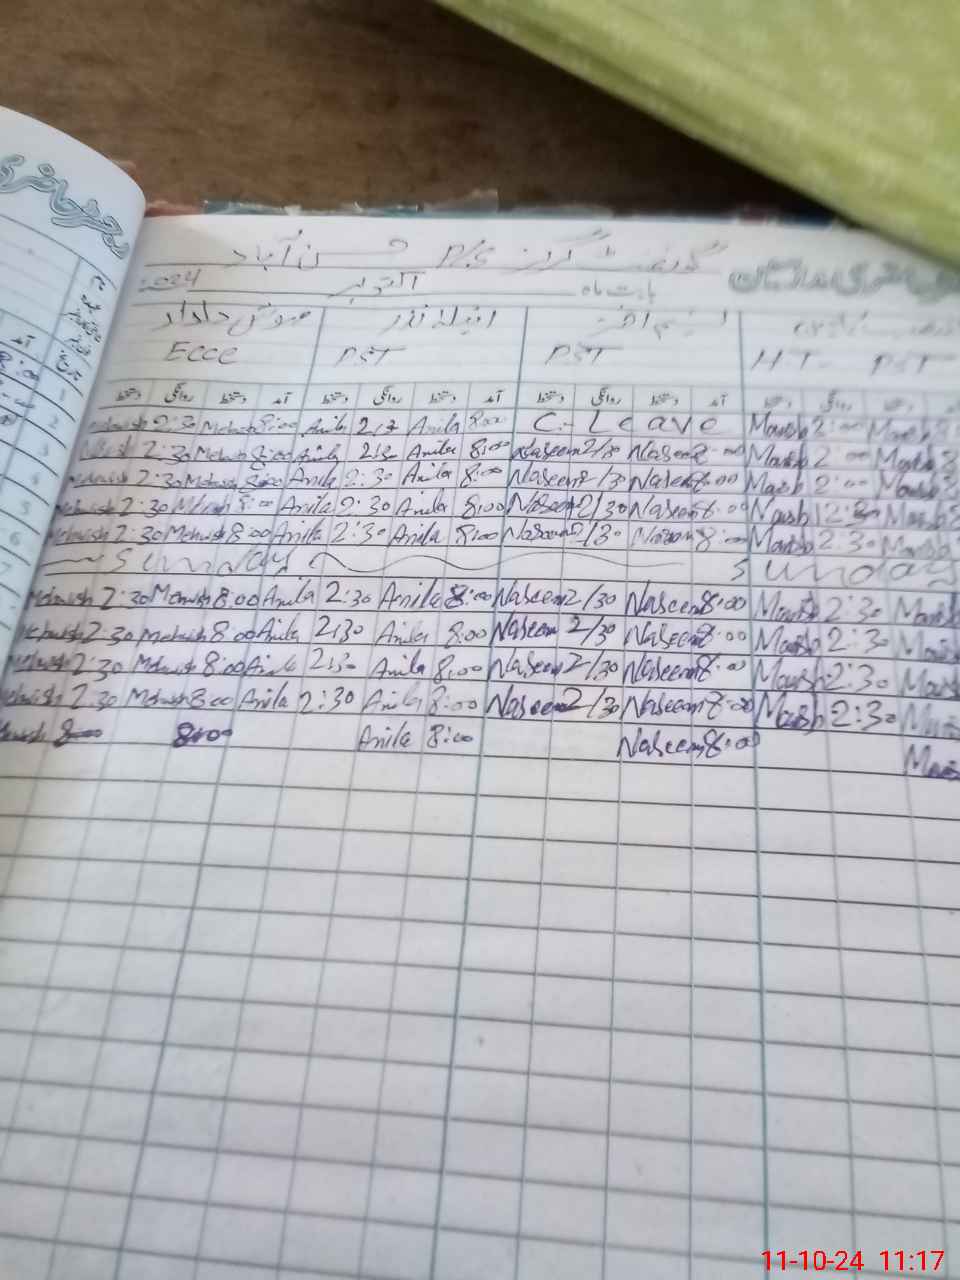 رجسٹر حاضری
گورنمنٹ گرلز P/S حسن آباد
بابت ماہ اکتوبر 2024
مہوش داداد انیلہ نذر
Ecce PST PST H.T- PST
دستخط روانگی دستخط آمد دستخط روانگی دستخط آمد دستخط روانگی دستخط آمد دستخط روانگی دستخط
1 Mehwish 2:30 Mehwish 8:00 Anila 2:30 Anila 8:00 C-Leave Mawish 2:00 Mawish
2 Mehwish 2:30 Mehwish 8:00 Anila 2:30 Anila 8:00 Naseem 2/30 Naseem 8:00 Mawish 2:00 Mawish 8
3 Mehwish 2:30 Mehwish 8:00 Anila 2:30 Anila 8:00 Naseem 2/30 Naseem 8:00 Mawish 2:00 Mawish
4 Mehwish 2:30 Mehwish 8:00 Anila 2:30 Anila 8:00 Naseem 2/30 Naseem 8:00 Mawish 2:30 Mawish
5 Mehwish 2:30 Mehwish 8:00 Anila 2:30 Anila 8:00 Naseem 2/30 Naseem 8:00 Mawish 2:30 Mawish
6 Sunday Sunday
7 Mehwish 2:30 Mehwish 8:00 Anila 2:30 Anila 8:00 Naseem 2/30 Naseem 8:00 Mawish 2:30 Mawish
Mehwish 2:30 Mehwish 8:00 Anila 2:30 Anila 8:00 Naseem 2/30 Naseem 8:00 Mawish 2:30 Mawish
Mehwish 2:30 Mehwish 8:00 Anila 2:30 Anila 8:00 Naseem 2/30 Naseem 8:00 Mawish 2:30 Mawish
Mehwish 2:30 Mehwish 8:00 Anila 2:30 Anila 8:00 Naseem 2/30 Naseem 8:00 Mawish 2:30 Mawish
8:00 Anila 8:00 Naseem 8:00 Mawish
11-10-24 11:17